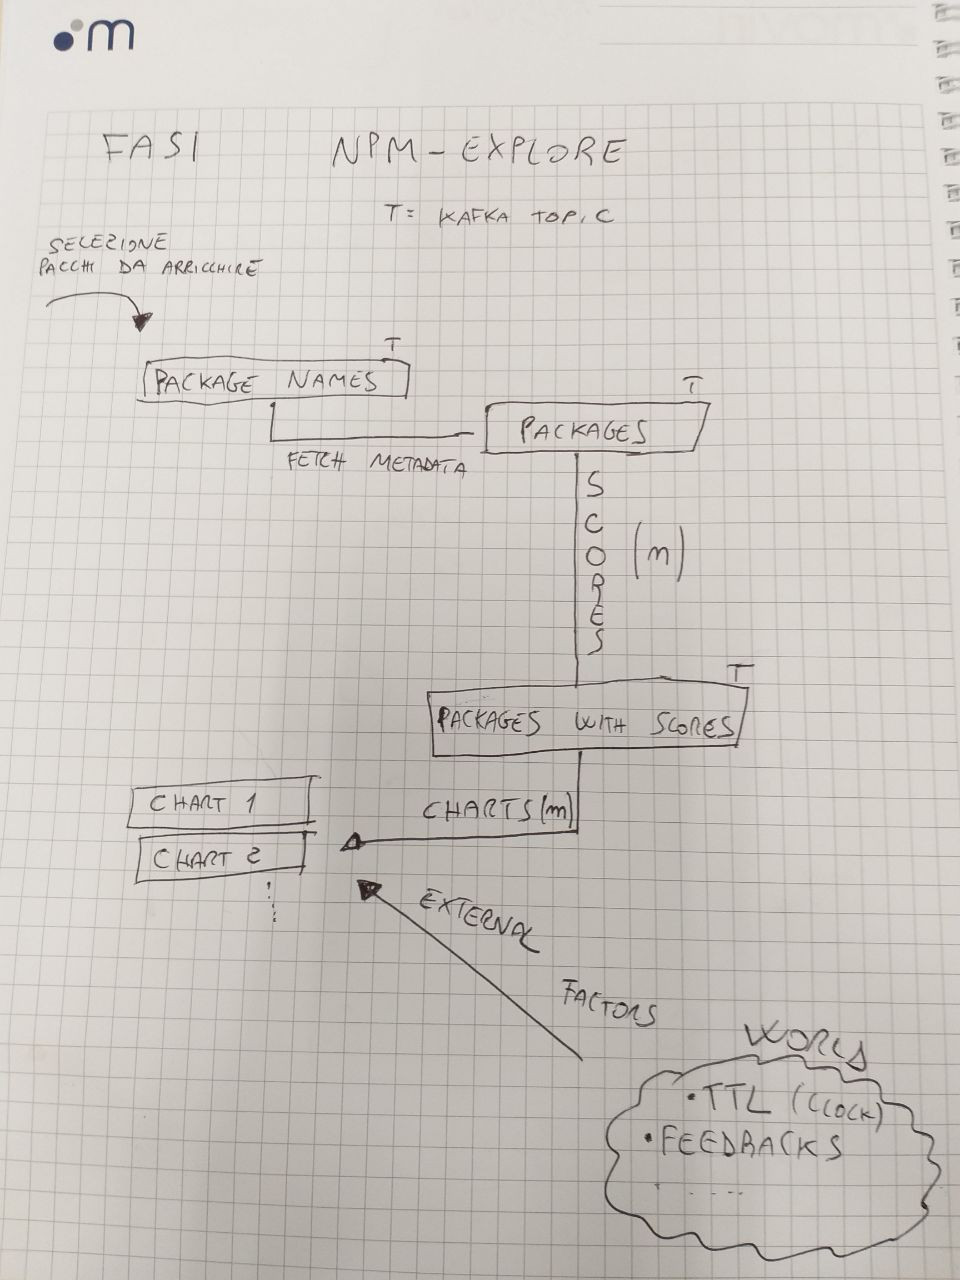 m
FASI NPM - EXPLORE
T = KAFKA TOPIC
SELEZIONE
PACCHI DA ARRICCHIRE
T
PACKAGE NAMES
T
PACKAGES
FETCH METADATA
SCORES
(n)
T
PACKAGES WITH SCORES
CHARTS (m)
CHART 1
CHART 2
EXTERNAL
FACTORS
WORLD
• TTL (CLOCK)
• FEEDBACKS